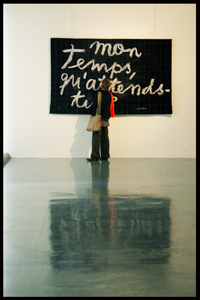 mon
temps,
qu'attends-
tu ?